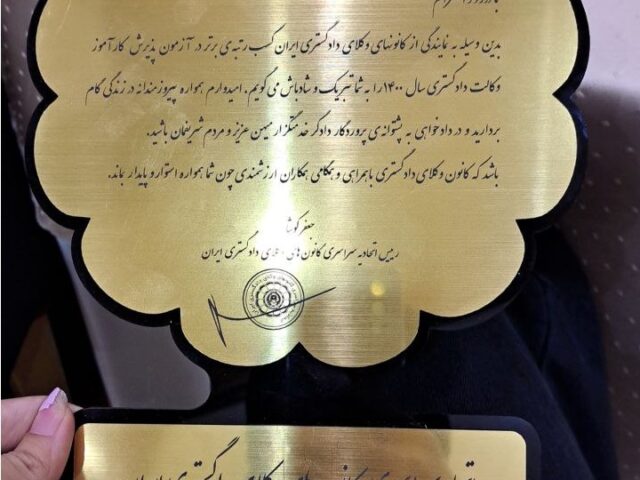 با درود و احترام
بدین وسیله به نمایندگی از کانونهای وکلای دادگستری ایران کسب رتبه‌ی برتر در آزمون پذیرش کارآموز
وکالت دادگستری سال ۱۴۰۰ را به شما تبریک و شادباش می گویم. امیدوارم همواره پیروزمندانه در زندگی گام
بردارید و در دادخواهی به پشتوانه‌ی پروردگار دادگر خدمتگزار میهن عزیز و مردم شریفمان باشید.
باشد که کانون وکلای دادگستری با همراهی و همگامی همکاران ارزشمندی چون شما همواره استوار و پایدار بماند.
جعفر کوشا
رییس اتحادیه سراسری کانون های وکلای دادگستری ایران